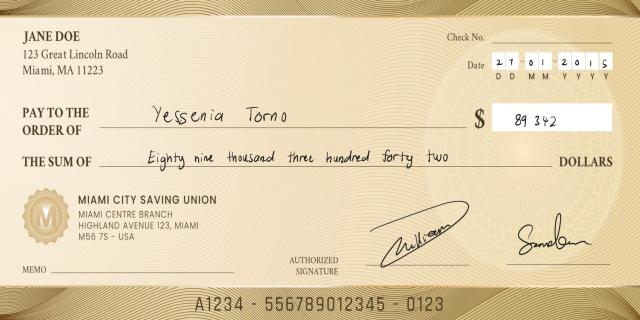 JANE DOE
123 Great Lincoln Road
Miami, MA 11223
Check No.
Date 27-01-2015
D D M M Y Y Y Y
PAY TO THE
ORDER OF Yessenia Torno
$ 89 342
THE SUM OF Eighty nine thousand three hundred forty two DOLLARS
MIAMI CITY SAVING UNION
MIAMI CENTRE BRANCH
HIGHLAND AVENUE 123, MIAMI
M56 7S - USA
M
William
MEMO
AUTHORIZED
SIGNATURE
A1234 - 556789012345 - 0123